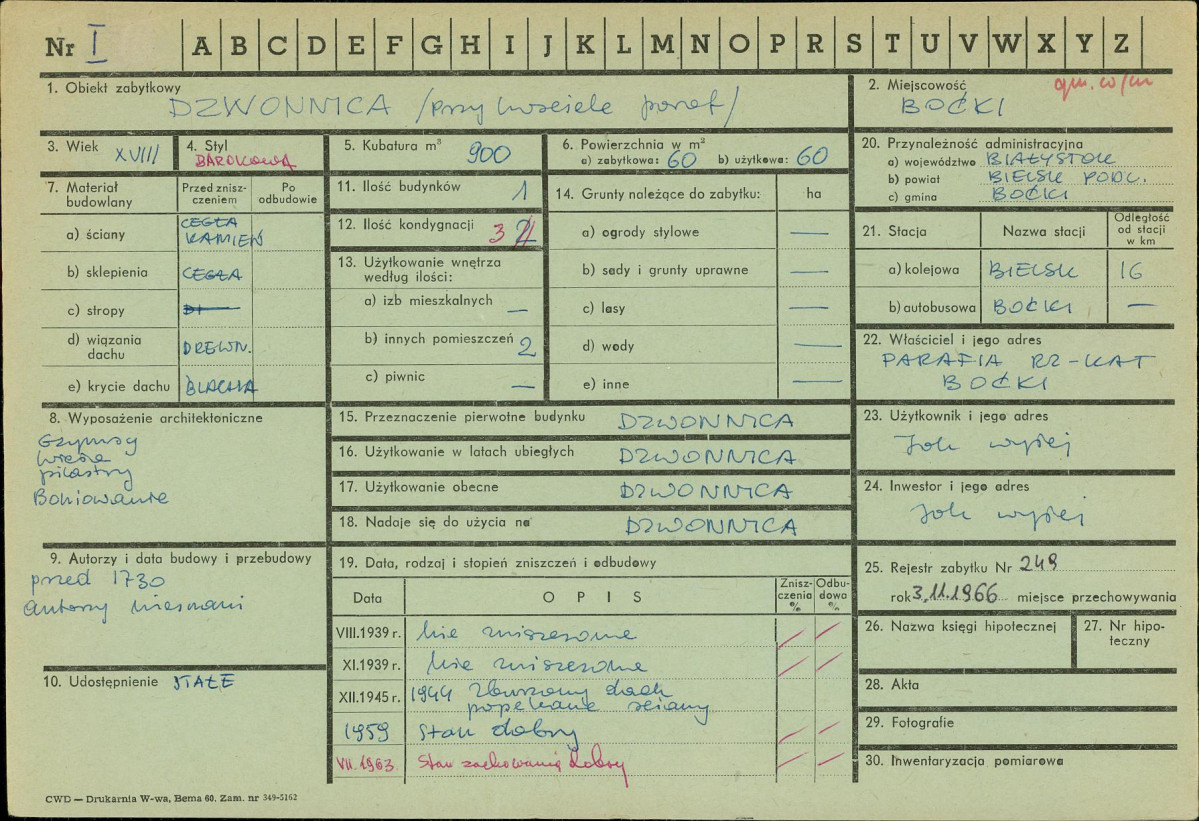 Nr I A B C D E F G H I J K L M N O P R S T U V W X Y Z
1. Obiekt zabytkowy
DZWONNICA /przy kościele paraf/
2. Miejscowość
BOĆKI
3. Wiek XVIII
4. Styl
BAROKOWA
5. Kubatura m³ 900
6. Powierzchnia w m²
a) zabytkowa: 60 b) użytkowa: 60
20. Przynależność administracyjna
a) województwo BIAŁYSTOK
b) powiat BIELSK PODL.
c) gmina BOĆKI
7. Materiał budowlany
Przed znisz-
czeniem
Po
odbudowie
a) ściany CEGŁA
KAMIEŃ
b) sklepienia CEGŁA
c) stropy
d) wiązania
dachu DREWN.
e) krycie dachu BLACHA
11. Ilość budynków 1
12. Ilość kondygnacji 3 2
13. Użytkowanie wnętrza
według ilości:
a) izb mieszkalnych —
b) innych pomieszczeń 2
c) piwnic —
14. Grunty należące do zabytku: ha
a) ogrody stylowe —
b) sady i grunty uprawne —
c) lasy —
d) wody —
e) inne —
21. Stacja Nazwa stacji
Odległość
od stacji
w km
a) kolejowa BIELSK 16
b) autobusowa BOĆKI —
22. Właściciel i jego adres
PARAFIA RZ-KAT
BOĆKI
8. Wyposażenie architektoniczne
Gzymsy
wieża
pilastry
Boniowanie
15. Przeznaczenie pierwotne budynku DZWONNICA
16. Użytkowanie w latach ubiegłych DZWONNICA
17. Użytkowanie obecne DZWONNICA
18. Nadaje się do użycia na DZWONNICA
23. Użytkownik i jego adres
Jak wyżej
24. Inwestor i jego adres
Jak wyżej
9. Autorzy i data budowy i przebudowy
przed 1730
autorzy nieznani
10. Udostępnienie STAŁE
19. Data, rodzaj i stopień zniszczeń i odbudowy
Data OPIS
Znisz-
czenia
%
Odbu-
dowa
%
VIII.1939 r. Nie zniszczone
XI.1939 r. Nie zniszczone
XII.1945 r. 1944 Zburzony dach
popękane ściany
1959 Stan dobry
VII.1963 Stan zachowania dobry
25. Rejestr zabytku Nr 249
rok 3.11.1966 miejsce przechowywania
26. Nazwa księgi hipotecznej
27. Nr hipo-
teczny
28. Akta
29. Fotografie
30. Inwentaryzacja pomiarowa
CWD — Drukarnia W-wa, Bema 60. Zam. nr 349-5162